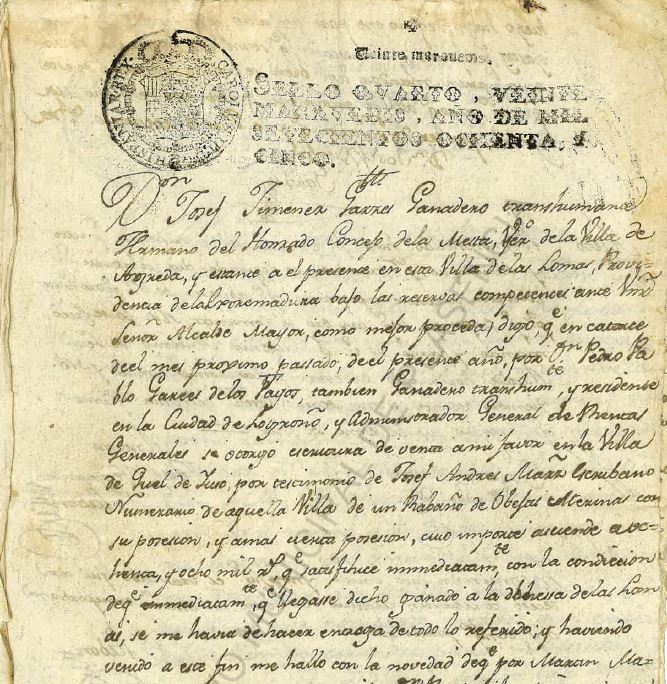 Veinte maravedis.
SELLO QVARTO, VEINTE
MARAVEDIS, AÑO DE MIL
SETECIENTOS OCHENTA, Y
CINCO.
Dn Josef Ximenez Garzes Ganadero transhumante
Hermano del Honrado Concejo de la Mesta, Vzo de la Villa de
Agreda, y estante a el presente en esta Villa de las Lomas Provi-
dencia de la Extremadura bajo las reservas competentes ante Vmd
Señor Alcalde Mayor, como mejor proceda; digo qe en catorce
de el mes proximo pasado, de el presente año, por Dn Pedro Pa
blo Garces de los Fayos, tambien Ganadero transhumte, y residente
en la Ciudad de Logroño, y Administrador General de Rentas
Generales se otorgo escritura de venta a mi favor en la Villa
de por testimonio de Josef Andres Marzn Escribano
Numerario de aquella Villa de un Rabaño de Obejas Merinas con
su posesion, y a mas cierta posesion, cuio importe asciende a oc-
henta, y ocho mil rs qe satisfhice immediatamte, con la condicion
deqe immediatamte, qe llegasse dicho ganado a la dehesa de las Lom
as, se me havia de hacer entrega de todo lo referido; y haviendo
venido a este fin me hallo con la novedad deqe por Martin Ma-